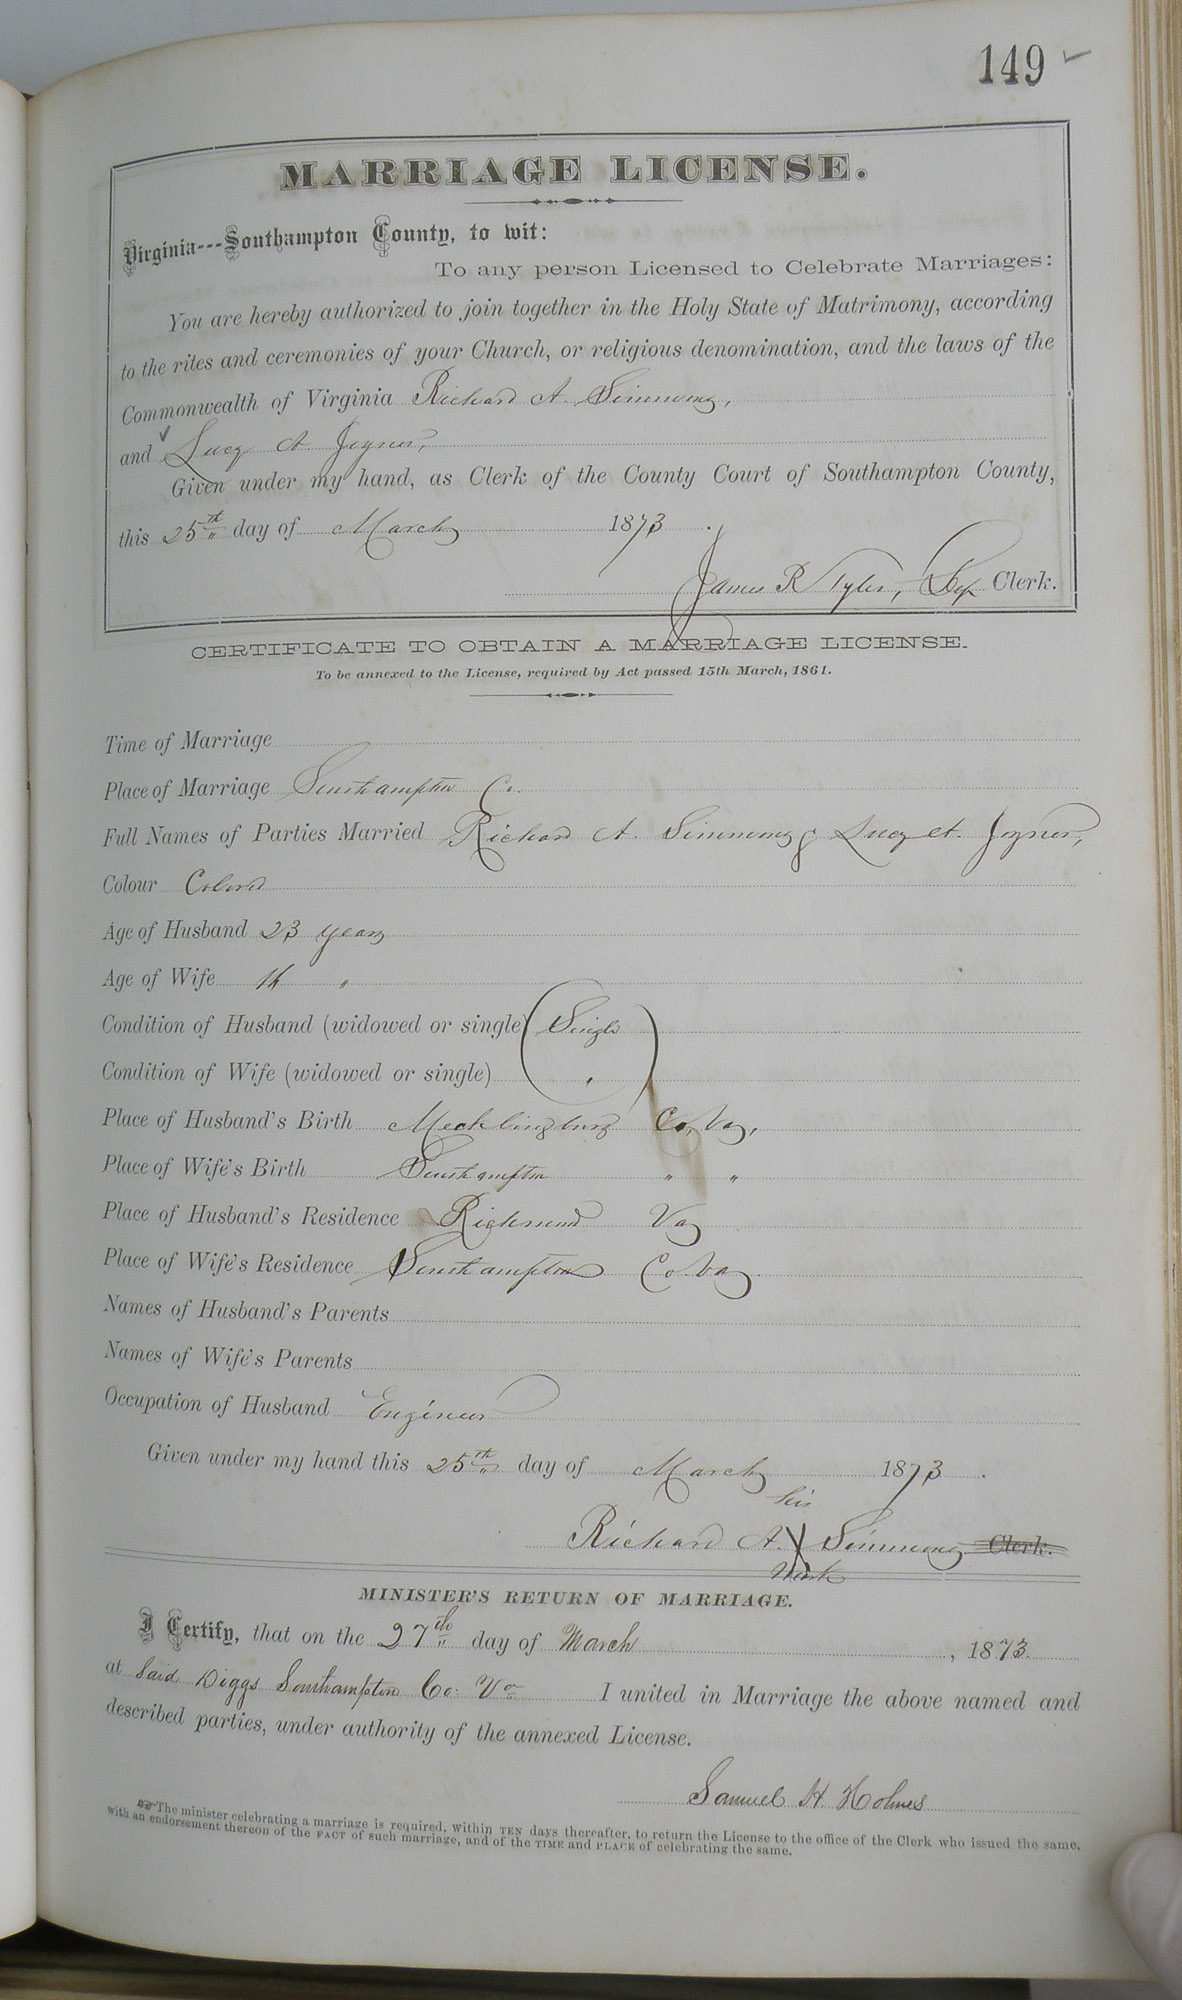 149
MARRIAGE LICENSE.
Virginia---Southampton County, to wit:
To any person Licensed to Celebrate Marriages:
You are hereby authorized to join together in the Holy State of Matrimony, according
to the rites and ceremonies of your Church, or religious denomination, and the laws of the
Commonwealth of Virginia Richard A. Simmons,
and Lucy A Joyner,
Given under my hand, as Clerk of the County Court of Southampton County,
this 25th day of March 1873.
James R Tyler, Dep Clerk.
CERTIFICATE TO OBTAIN A MARRIAGE LICENSE.
To be annexed to the License, required by Act passed 15th March, 1861.
Time of Marriage
Place of Marriage Southampton Co.
Full Names of Parties Married Richard A. Simmons & Lucy A. Joyner,
Colour Colored
Age of Husband 23 years
Age of Wife "
Condition of Husband (widowed or single) Single
Condition of Wife (widowed or single) "
Place of Husband's Birth Mecklingburg Co, Va,
Place of Wife's Birth Southampton " "
Place of Husband's Residence Richmond Va
Place of Wife's Residence Southampton Co Va
Names of Husband's Parents
Names of Wife's Parents
Occupation of Husband Engineer
Given under my hand this 25th day of March 1873.
his
Richard A. X Simmons Clerk.
mark
MINISTER'S RETURN OF MARRIAGE.
I Certify, that on the 27th day of March, 1873.
at Said Diggs Southampton Co. Va I united in Marriage the above named and
described parties, under authority of the annexed License.
Samuel H Holmes
☞The minister celebrating a marriage is required, within TEN days thereafter, to return the License to the office of the Clerk who issued the same,
with an endorsement thereon of the FACT of such marriage, and of the TIME and PLACE of celebrating the same.